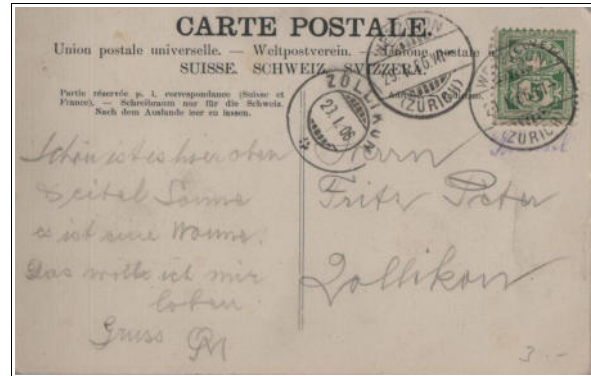 CARTE POSTALE.
Union postale universelle. — Weltpostverein. — Unione postale
SUISSE. SCHWEIZ. SVIZZERA.
Partie réservée p. l. correspondance (Suisse et
France). — Schreibraum nur für die Schweiz.
Nach dem Auslande leer zu lassen.
ZOLLIKON
29.I.06
(ZÜRICH)
(ZÜRICH)
Schön ist es hier oben
Herrn
Fritz Peter
Zollikon
es ist eine Wonne!
Das wollte ich mir
loben
Gruss
3.-